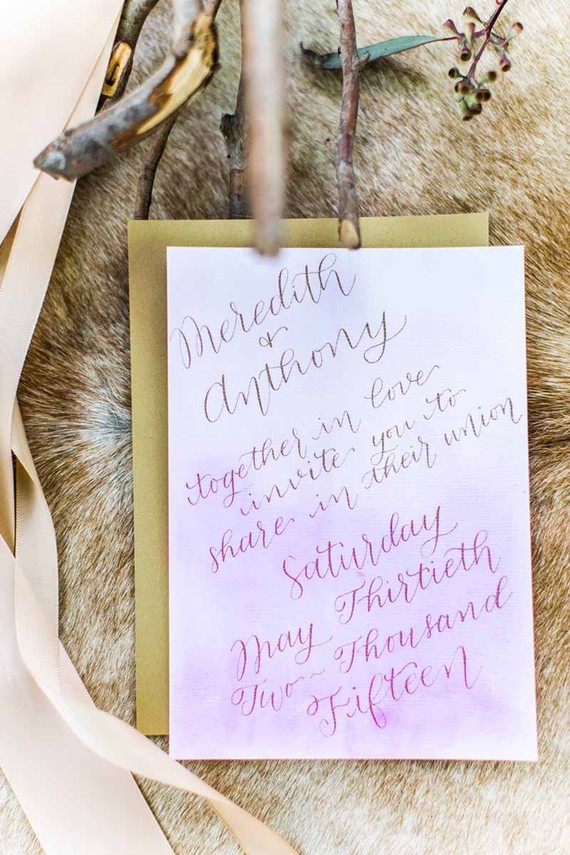 Meredith
&
Anthony
together in love
invite you to
share in their union
Saturday
May Thirtieth
Two~Thousand
Fifteen